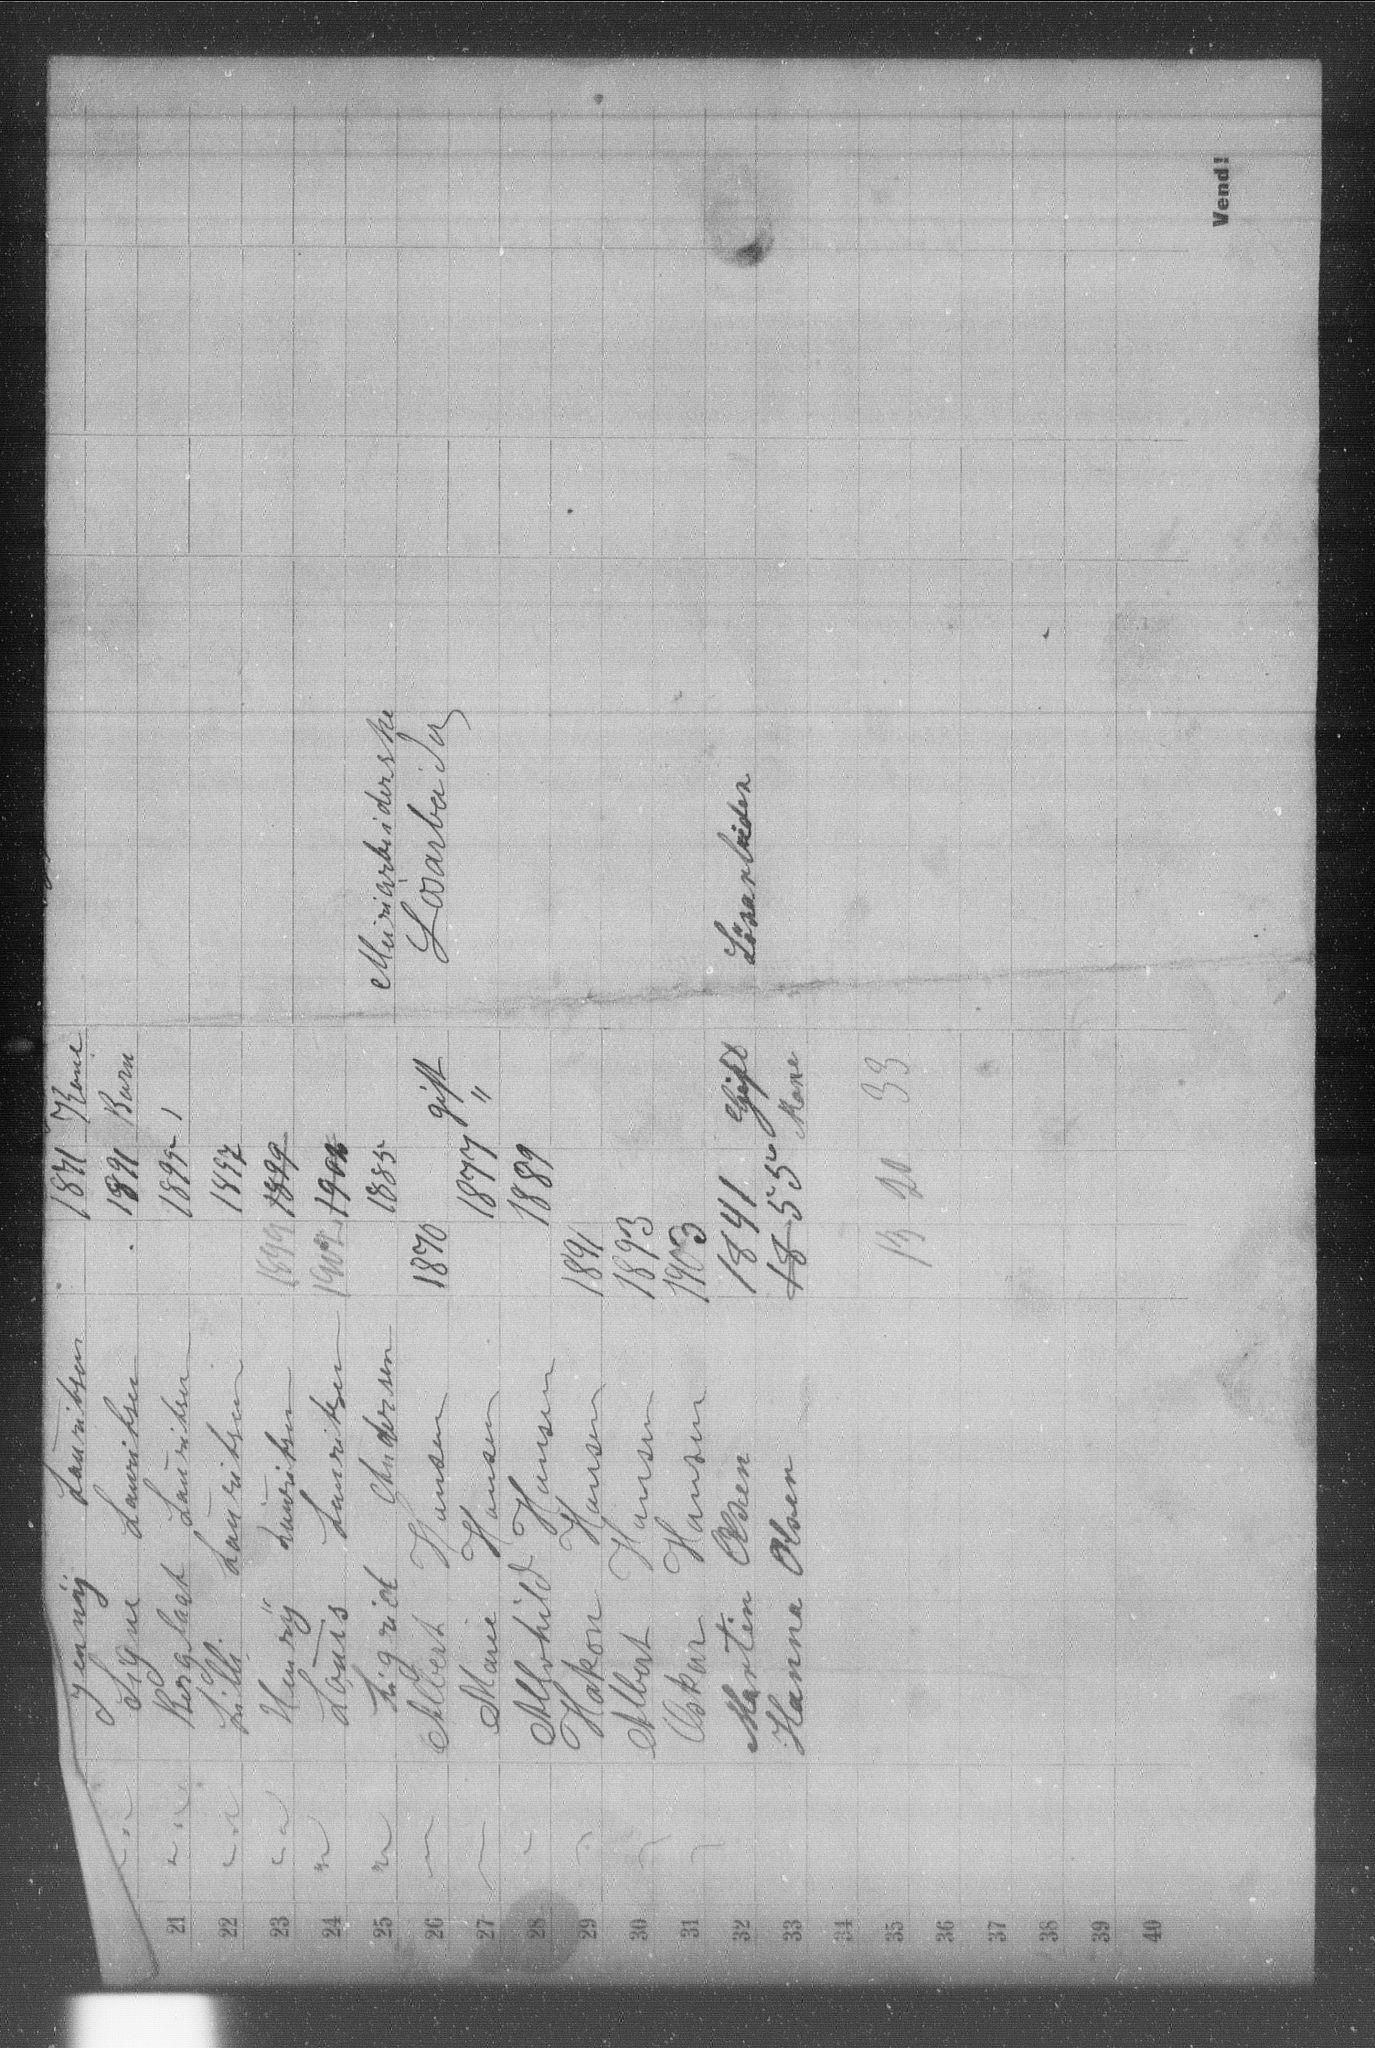 Jennÿ Lauritsen 1871 Kone
Signe Lauritsen 1891 Barn
21 Bergljot Lauritsen 1895
22 Lilli Lauritsen 1897
23 Henrÿ Lauritsen 1899 1899
24 Louis Lauritsen 1902 1902
25 Sigrid Andersen 1885 Meiriarbeiderske
26 Albert Hansen 1870 gift Løsarbeider
27 Marie Hansen 1877 "
28 Alvhild Hansen 1889
29 Hakon Hansen 1891
30 Albert Hansen 1893
31 Oskar Hansen 1903
32 Martin Olsen 1841 Gift Lösarbeider
33 Hanna Olsen 1855 Kone
34
35 13 20 33
36
37
38
39
40
Vend!